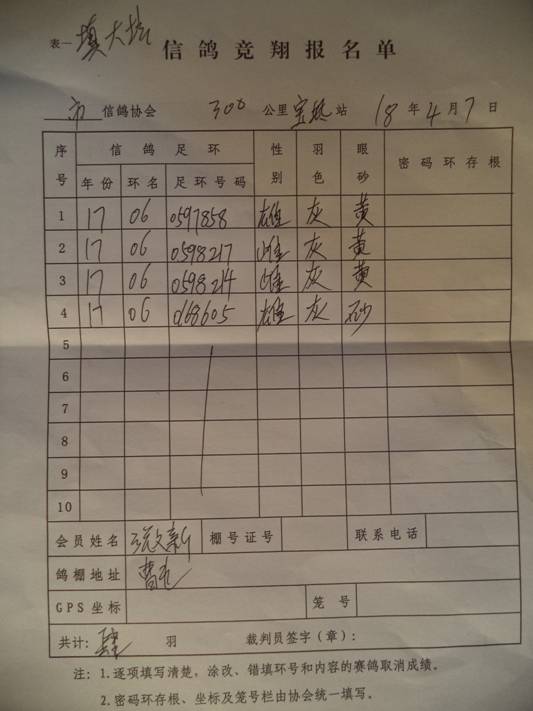 表一 填大坑
信鸽竞翔报名单
市 信鸽协会 300 公里 站 18 年 4 月 7 日
序号 信鸽足环 性别 羽色 眼砂 密码环存根
年份 环名 足环号码
1 17 06 0597858 雄 灰 黄
2 17 06 0598217 雌 灰 黄
3 17 06 0598214 雌 灰 黄
4 17 06 0168605 雄 灰 砂
5
6
7
8
9
10
会员姓名 张文新 棚号证号 联系电话
鸽棚地址 曹
GPS坐标 笼号
共计: 肆 羽 裁判员签字（章）:
注: 1.逐项填写清楚，涂改、错填环号和内容的赛鸽取消成绩。
2.密码环存根、坐标及笼号栏由协会统一填写。